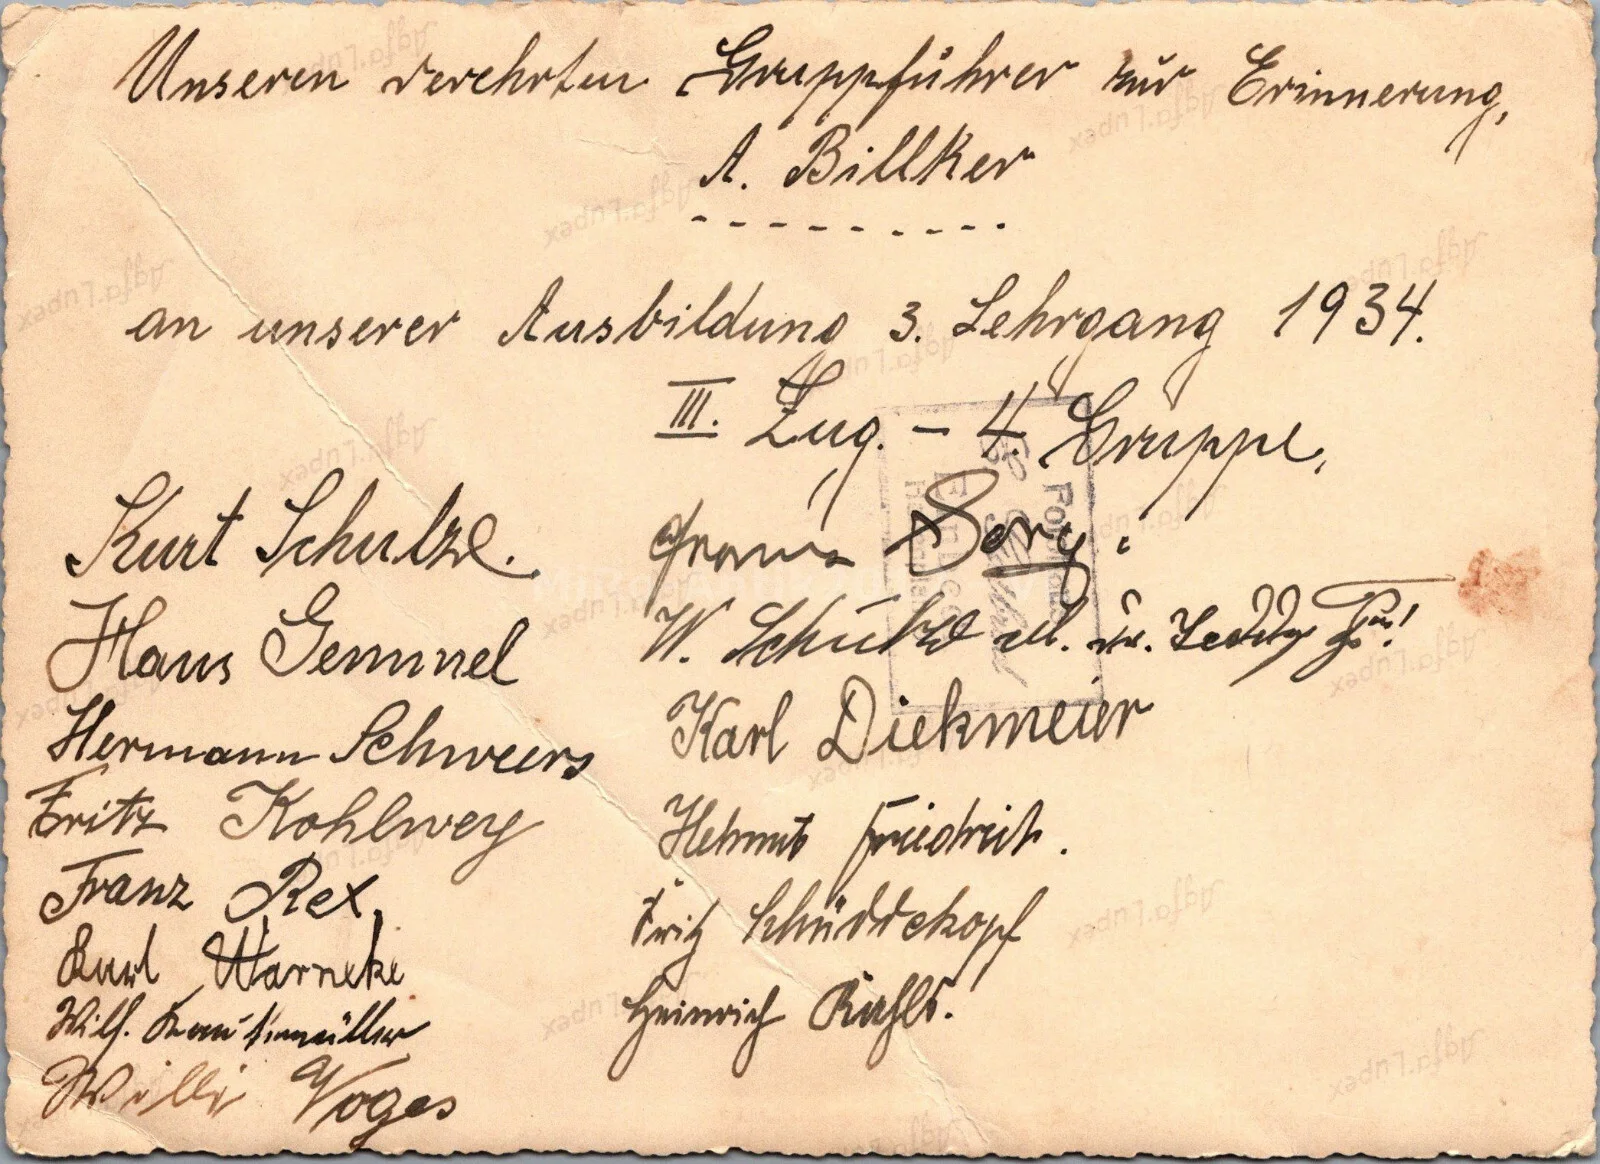 Unseren verehrten Gruppführer zur Erinnerung,
A. Billker
an unserer Ausbildung 3. Lehrgang 1934.
III. Zug. - 4. Gruppe.
Kurt Schulze.
Hans Gemmel
Hermann Schweers
Fritz Kohlwey
Franz Rex.
Karl Warneke
Wilh.
Willi Voges
Franz
W. Schütze
Karl Diekmeier
Helmut Friedrich.
Fritz Schüddekopf
Heinrich
Agfa-Lupex